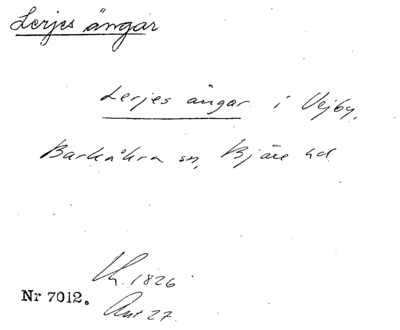 Lerjes ängar
Lerjes ängar i Vejby,
Barkåkra sn, Bjäre hd
Kh. 1826
Nr 7012.
27.